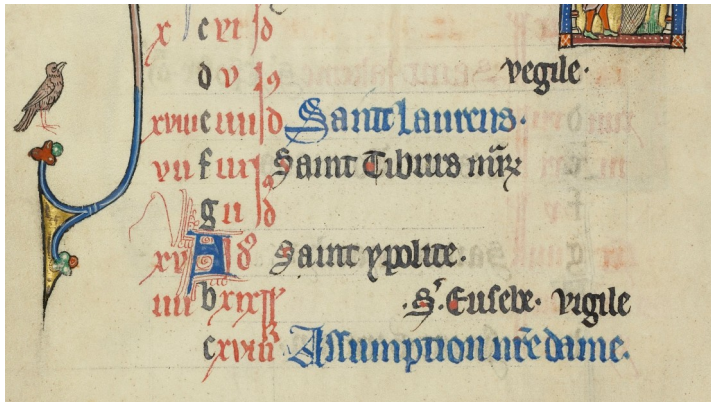 x c vi jd
d v jd vegile·
xviii e iiii jd Saint Laurens·
vii f iii jd Saint Tiburs mr̄
g ii jd
xv A id Saint ypolite·
iiii b xix kl ·S'. Eusebe· vigile
c xviii kl Assumption nr̄e dame·